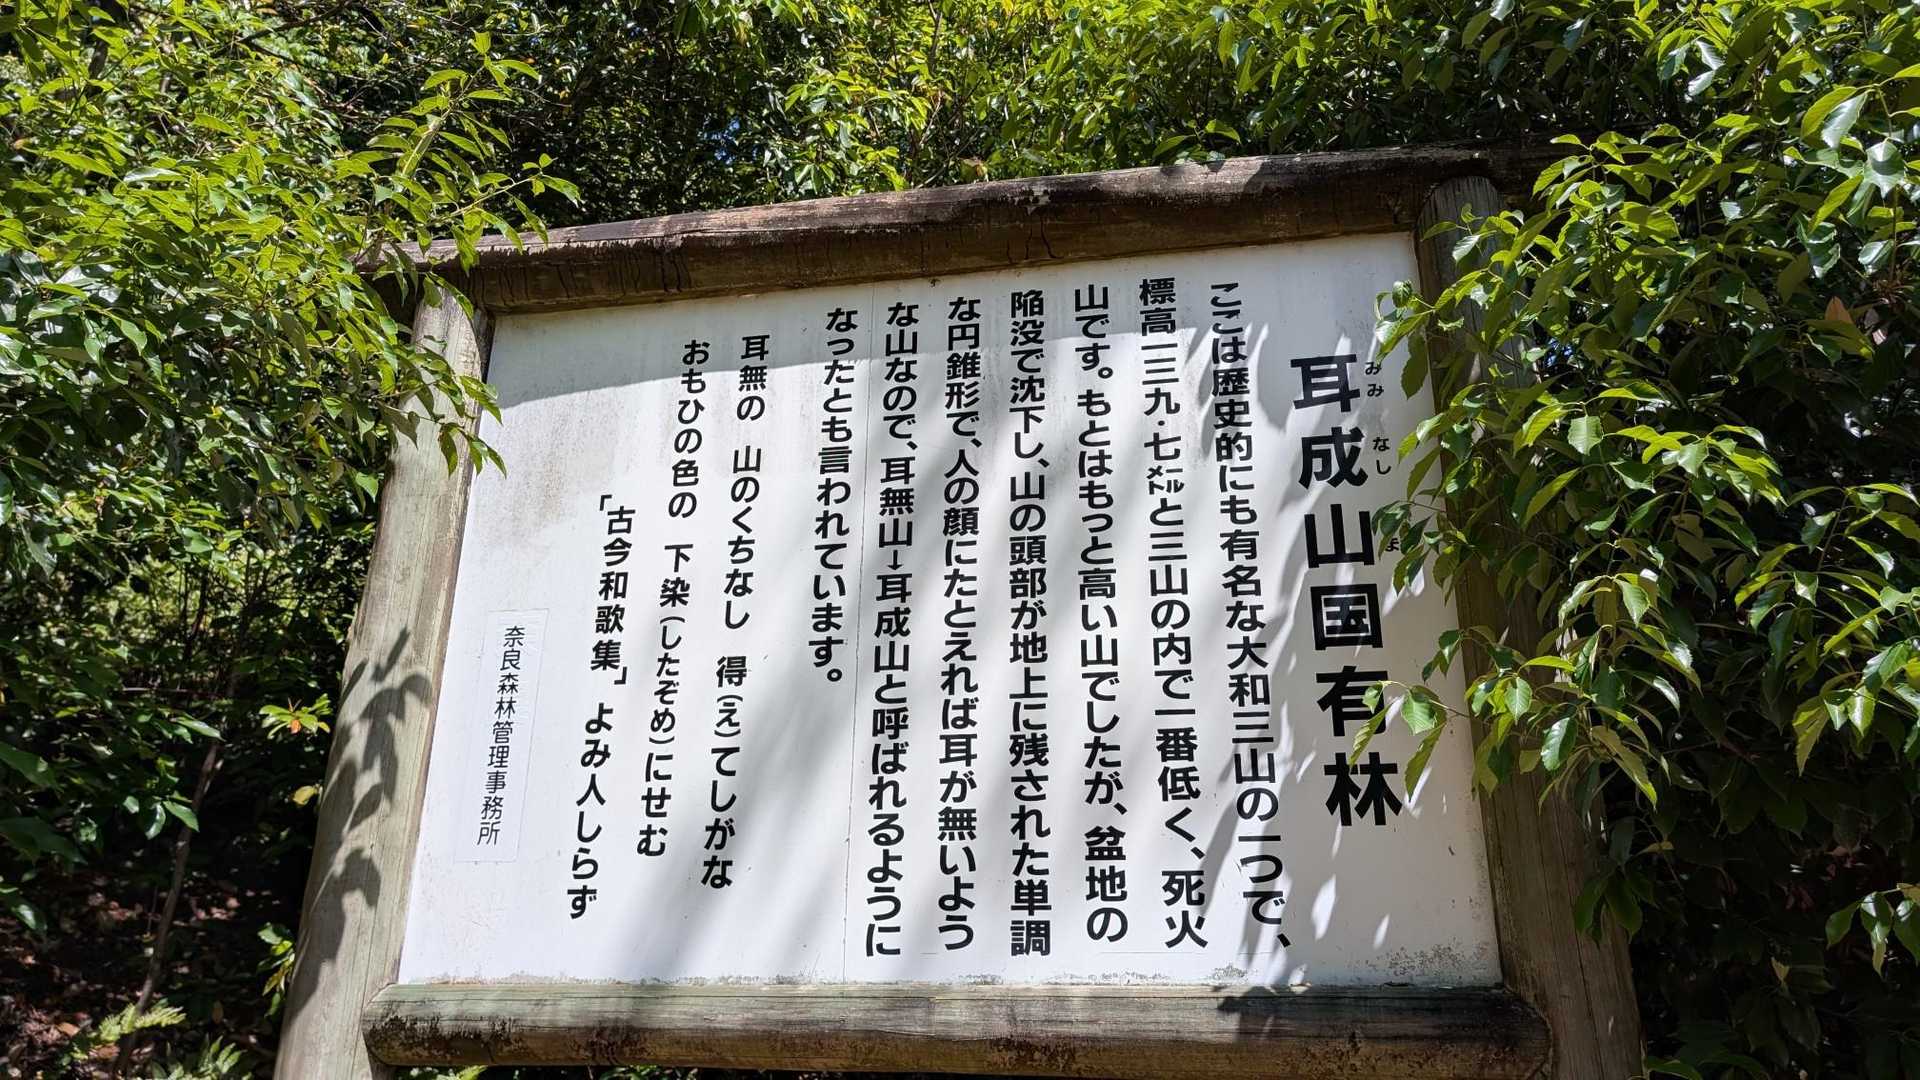 耳成山国有林
みみ なし
ここは歴史的にも有名な大和三山の一つで、
標高一三九・七メートルと三山の内で一番低く、死火
山です。もとはもっと高い山でしたが、盆地の
陥没で沈下し、山の頭部が地上に残された単調
な円錐形で、人の顔にたとえれば耳が無いよう
な山なので、耳無山→耳成山と呼ばれるように
なったとも言われています。
耳無の 山のくちなし 得(え)てしがな
おもひの色の 下染(したぞめ)にせむ
「古今和歌集」 よみ人しらず
奈良森林管理事務所